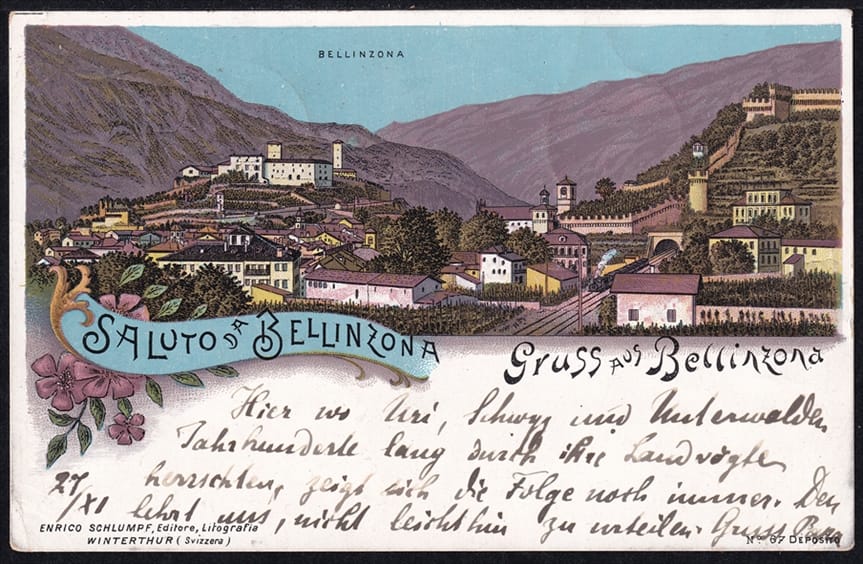 BELLINZONA
SALUTO DA BELLINZONA
Gruss aus Bellinzona
Hier wo Uri, Schwyz und Unterwalden
Jahrhunderte lang durch ihre Landvögte
herrschten, zeigt sich die Folge noch immer. Den
27/XI lehrt uns, nicht leichthin zu urteilen. Gruss
ENRICO SCHLUMPF, Editore, Litografia
WINTERTHUR (Svizzera)
No. 67 DEPOSITO